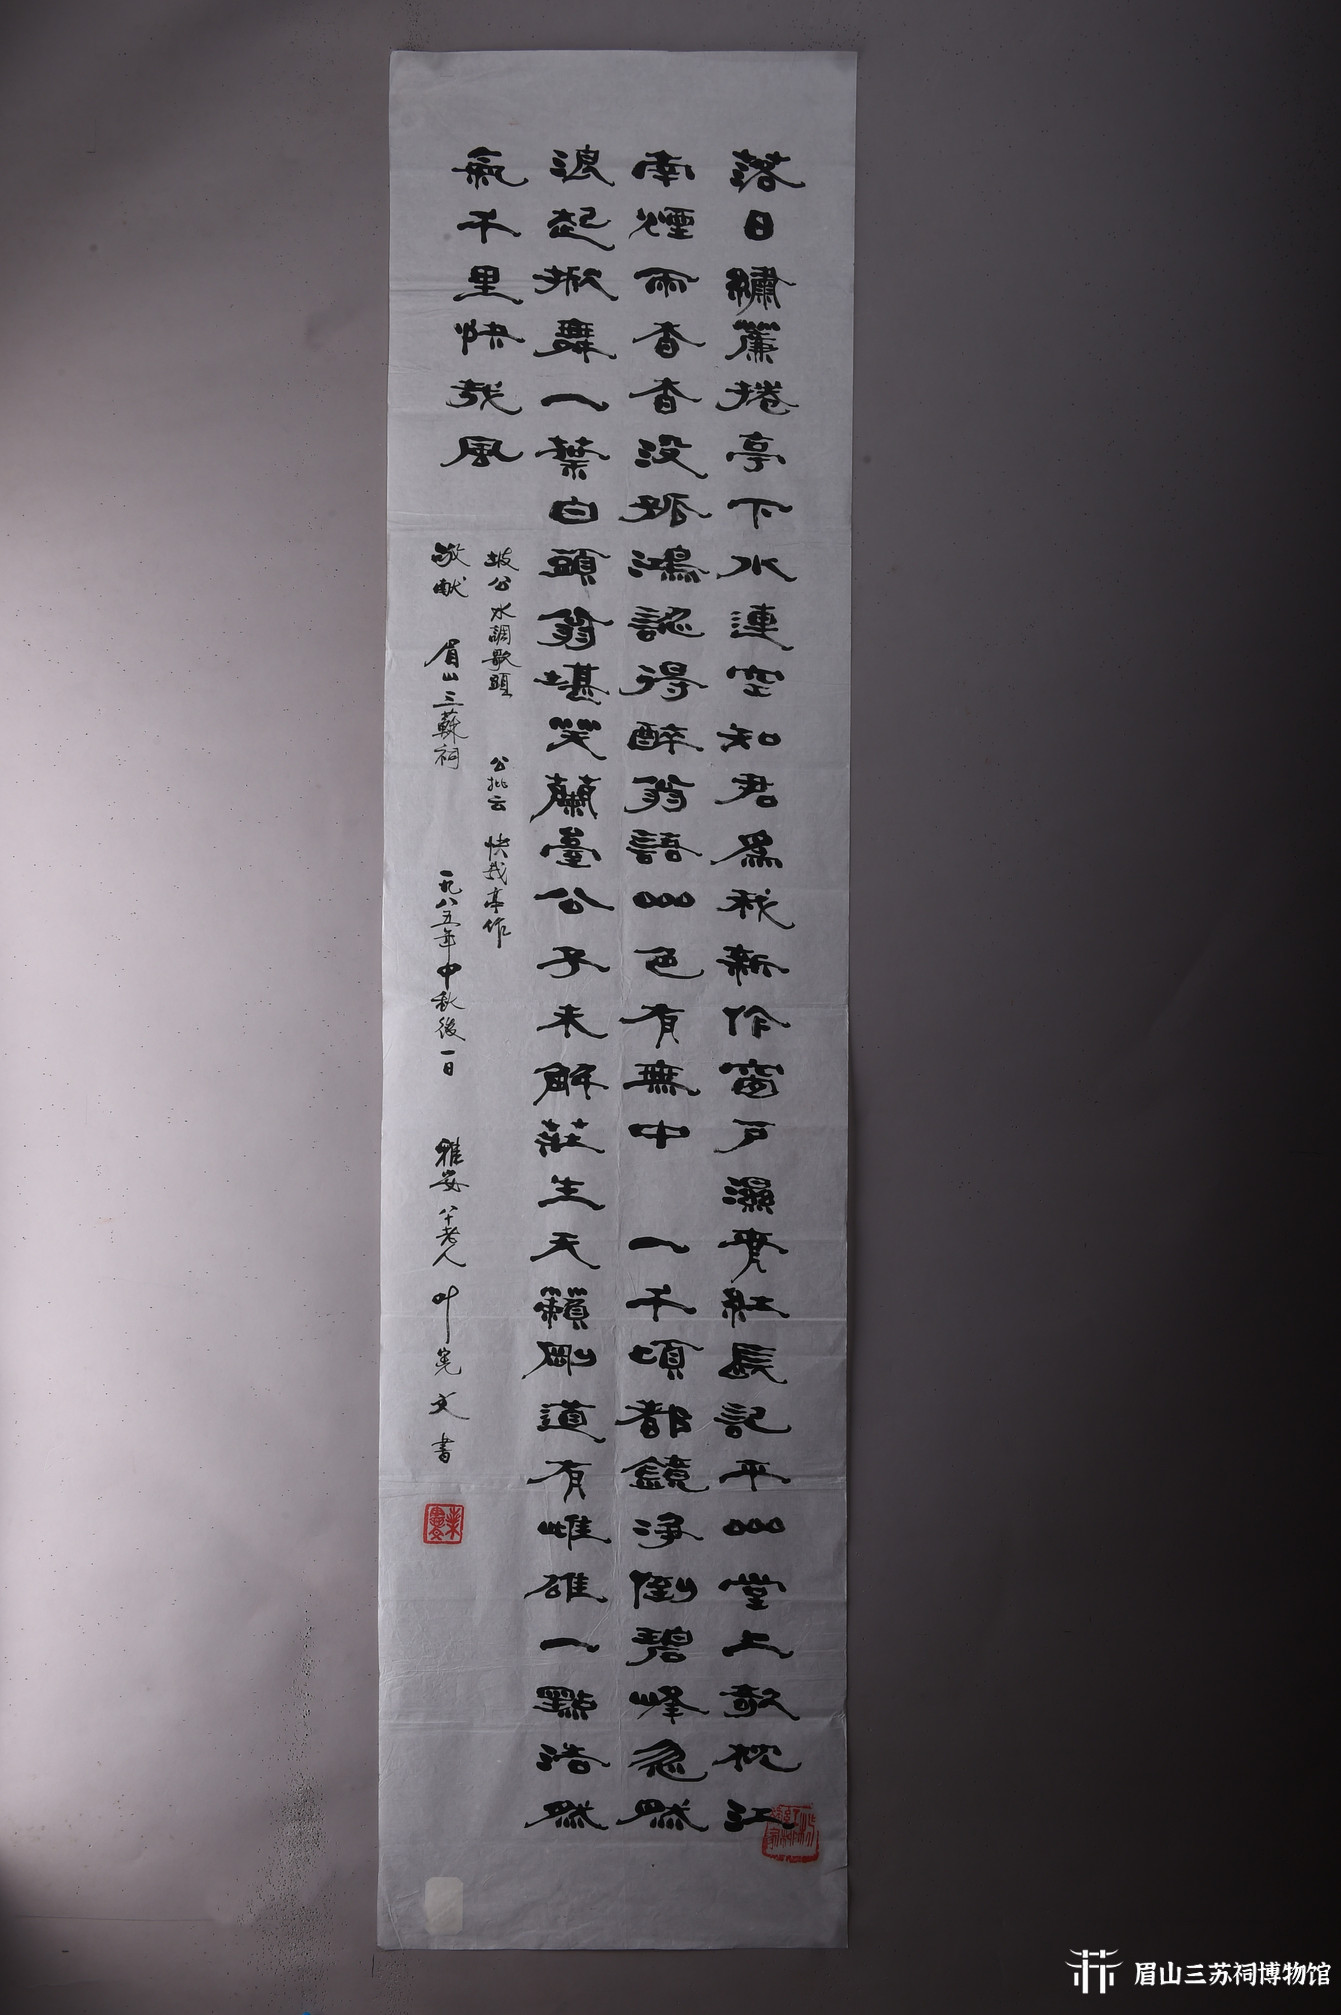 落日繡簾捲亭下水連空知君爲我新作窗户濕青紅長記平山堂上欹枕江
南煙雨杳杳没孤鴻認得醉翁語山色有無中 一千頃都鏡淨倒碧峰忽然
浪起掀舞一葉白頭翁堪笑蘭臺公子未解莊生天籟剛道有雌雄一點浩然
氣千里快哉風
坡公水調歌頭 公批云 快哉亭作
敬献 眉山三蘇祠 一九八五年中秋後一日 雅安八十老人 叶宪文書
眉山三苏祠博物馆